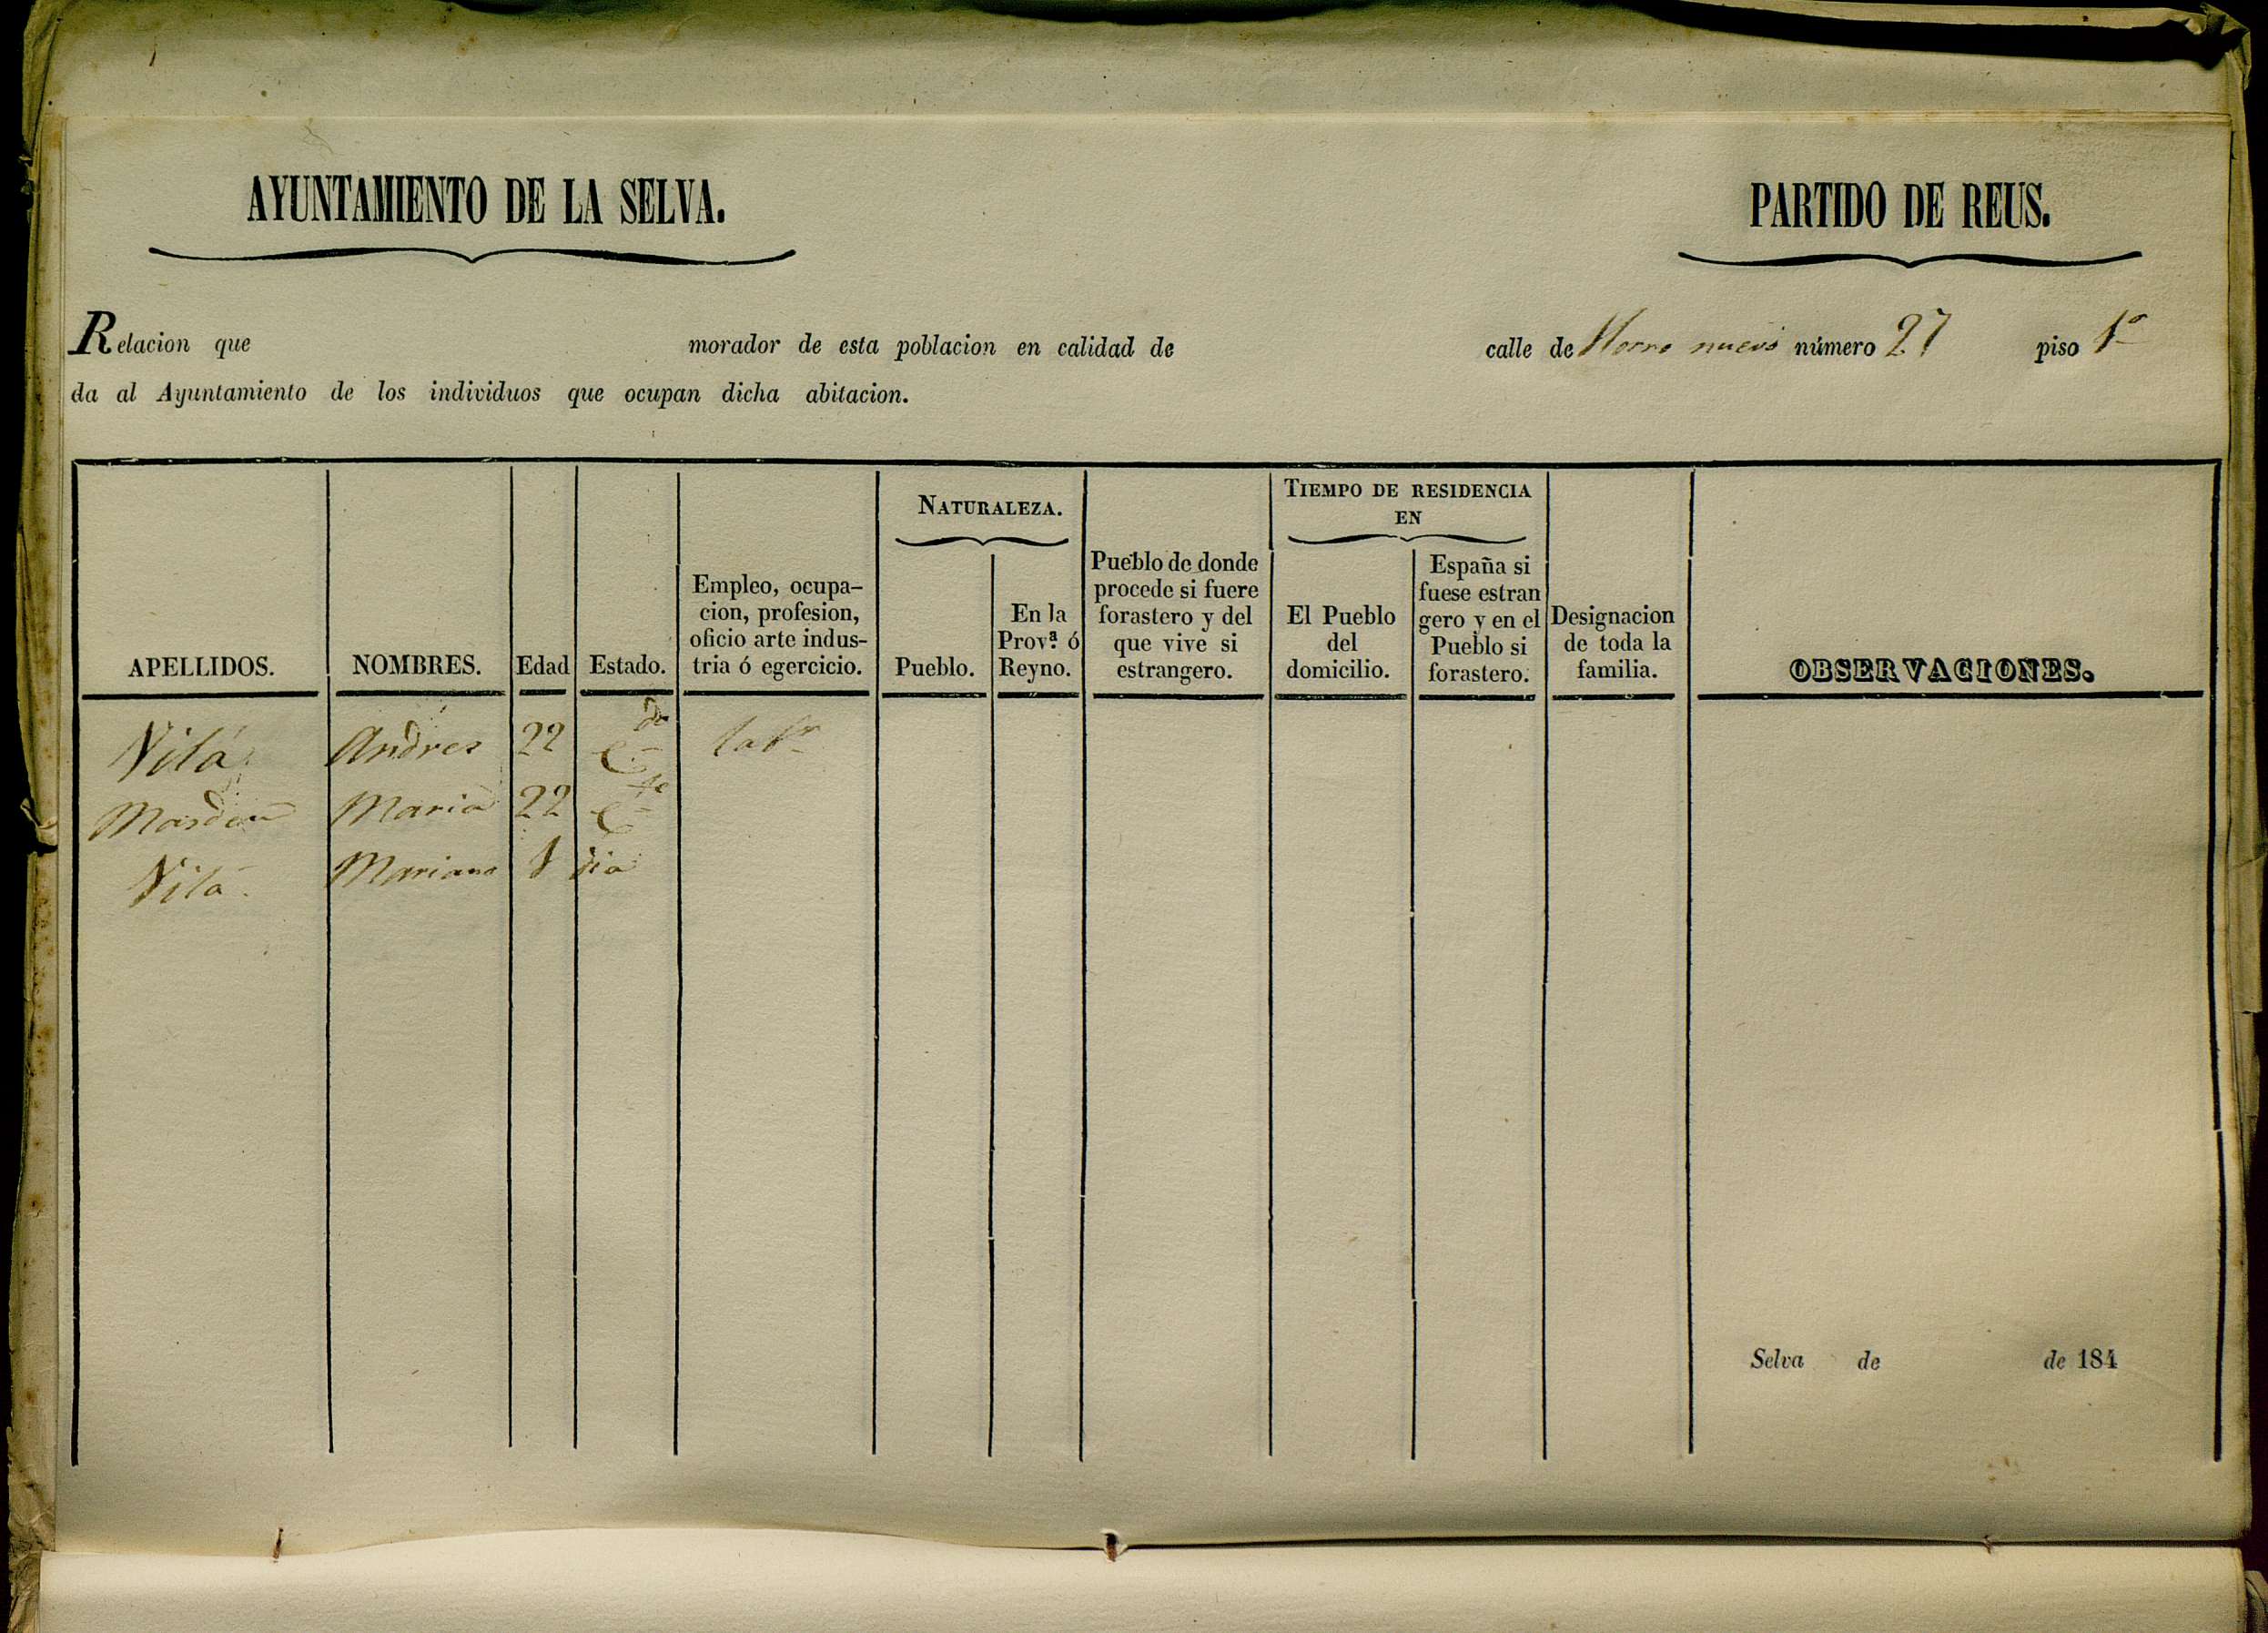 AYUNTAMIENTO DE LA SELVA.
PARTIDO DE REUS.
Relacion que morador de esta poblacion en calidad de calle de Horno nuevo número 27 piso 1º
da al Ayuntamiento de los individuos que ocupan dicha abitacion.
APELLIDOS.
NOMBRES.
Edad
Estado.
Empleo, ocupa-
cion, profesion,
oficio arte indus-
tria ó egercicio.
NATURALEZA.
Pueblo.
En la
Provª ó
Reyno.
Pueblo de donde
procede si fuere
forastero y del
que vive si
estrangero.
TIEMPO DE RESIDENCIA
EN
El Pueblo
del
domicilio.
España si
fuese estran
gero y en el
Pueblo si
forastero.
Designacion
de toda la
familia.
OBSERVACIONES.
Vilá Andres 22 C.do labr
Masdeu Maria 22 C.
Vilá Mariano 1 dia
Selva de de 184